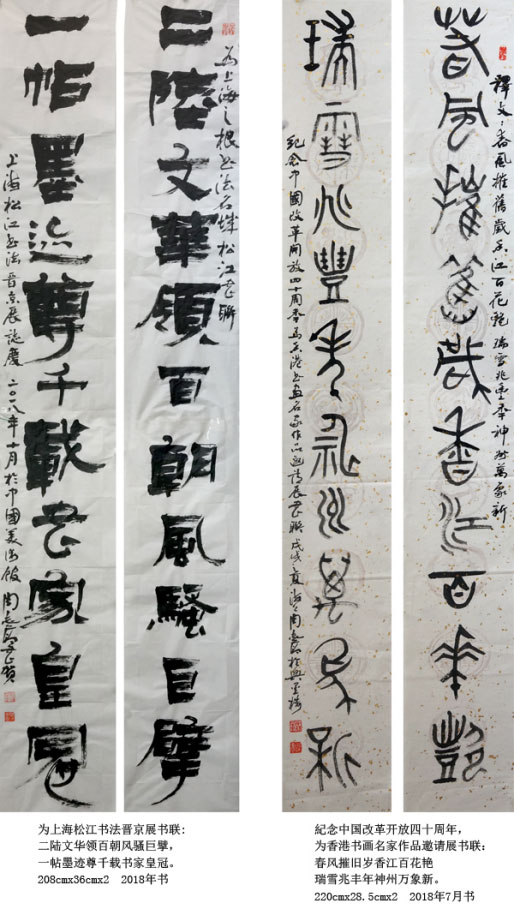 二陸文華領百朝風騷巨擘
为上海之根书法名城松江书联
一帖墨迹尊千載书家皇冠
上海松江书法晋京展誌慶 二〇一八年十月於中國美術館
春風摧舊歲香江百華艷
釋文：春風摧舊歲香江百花艷 瑞雪兆豐年神州萬象新
瑞雪兆豐年神州萬象新
紀念中國改革開放四十周年為香港书画名家作品邀請展书联 戊戌之夏
为上海松江书法晋京展书联:
二陆文华领百朝风骚巨擘,
一帖墨迹尊千载书家皇冠。
208cmx36cmx2 2018年书
紀念中国改革开放四十周年,
为香港书画名家作品邀请展书联:
春风摧旧岁香江百花艳
瑞雪兆丰年神州万象新。
220cmx28.5cmx2 2018年7月书